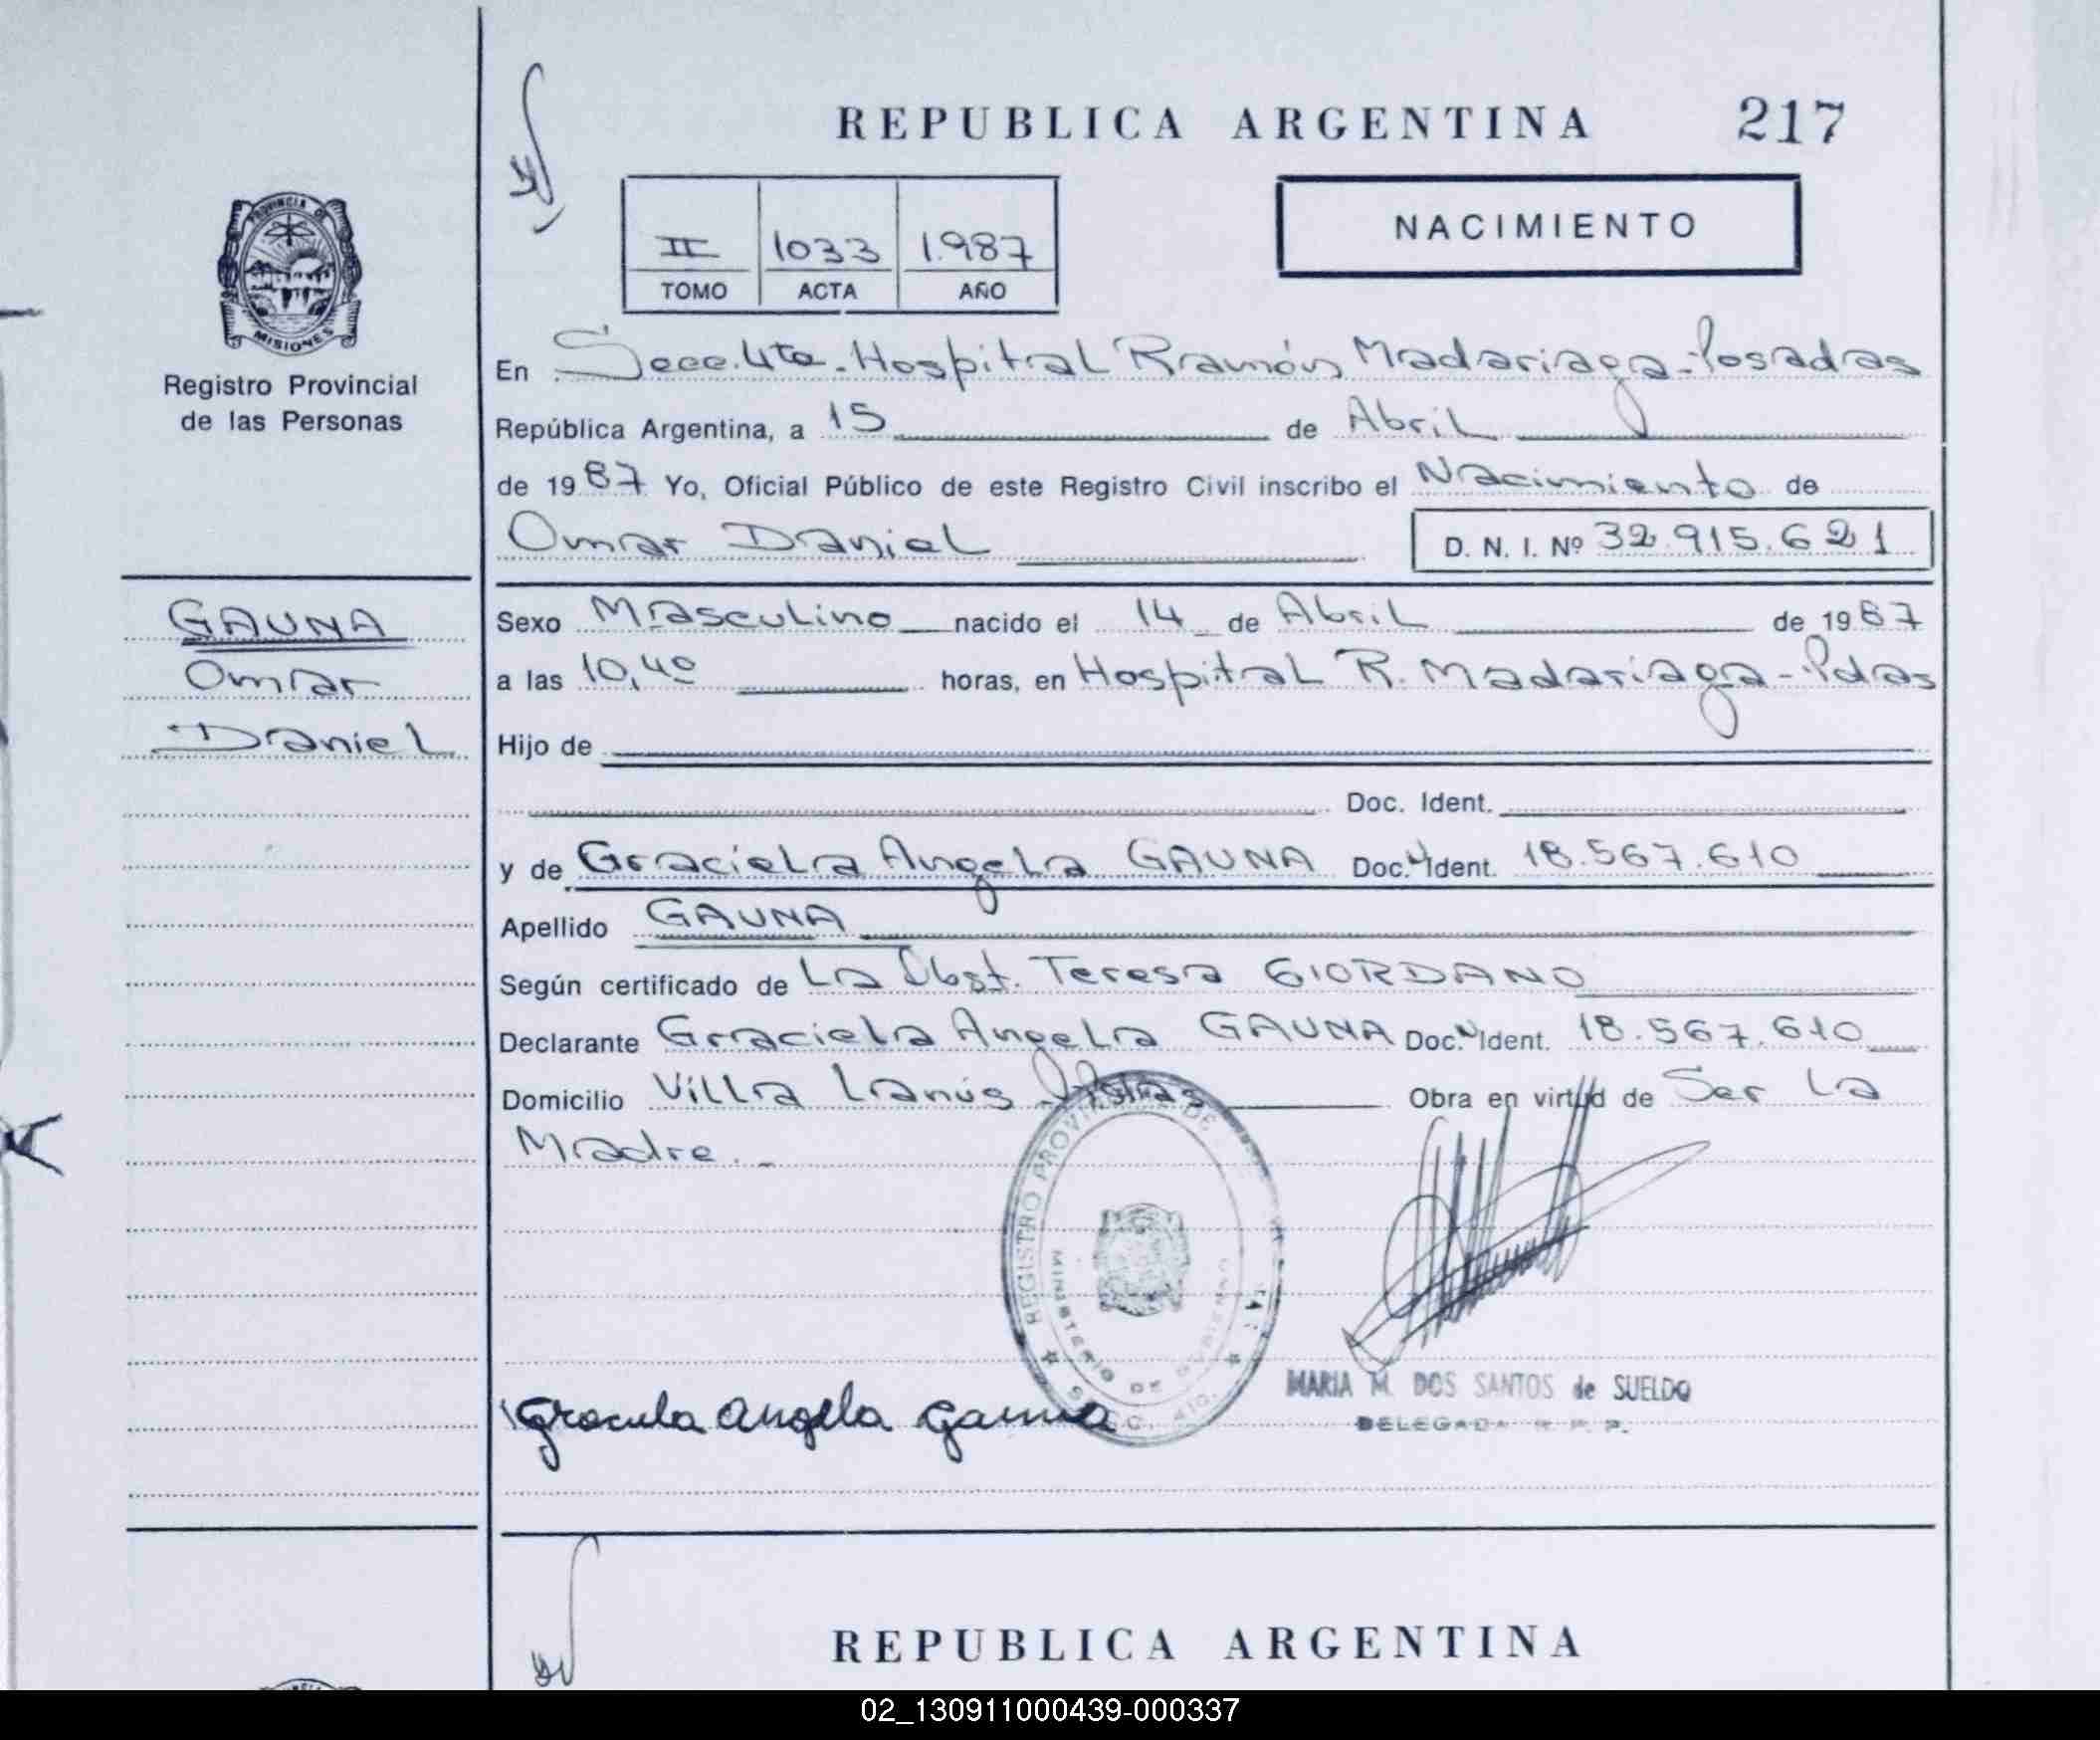 REPUBLICA ARGENTINA 217
II 1033 1.987
TOMO ACTA AÑO
NACIMIENTO
PROVINCIA DE
MISIONES
Registro Provincial
de las Personas
En Secc. 4ta. Hospital Ramón Madariaga - Posadas
República Argentina, a 15 de Abril
de 1987 Yo, Oficial Público de este Registro Civil inscribo el Nacimiento de
Omar Daniel D. N. I. Nº 32.915.621
GAUNA
Omar
Daniel
Sexo Masculino nacido el 14 de Abril de 1987
a las 10,40 horas, en Hospital R. Madariaga - Pdas
Hijo de
Doc. Ident.
y de Graciela Angela GAUNA Doc. Ident. 18.567.610
Apellido GAUNA
Según certificado de La Obst. Teresa GIORDANO
Declarante Graciela Angela GAUNA Doc. Ident. 18.567.610
Domicilio Villa Lanús Obra en virtud de Ser La
Madre.-
REGISTRO PROVINCIAL DE
MINISTERIO DE GOBIERNO
Graciela Angela Gauna
MARIA M. DOS SANTOS de SUELDO
DELEGADA R. P. P.
REPUBLICA ARGENTINA
02_130911000439-000337